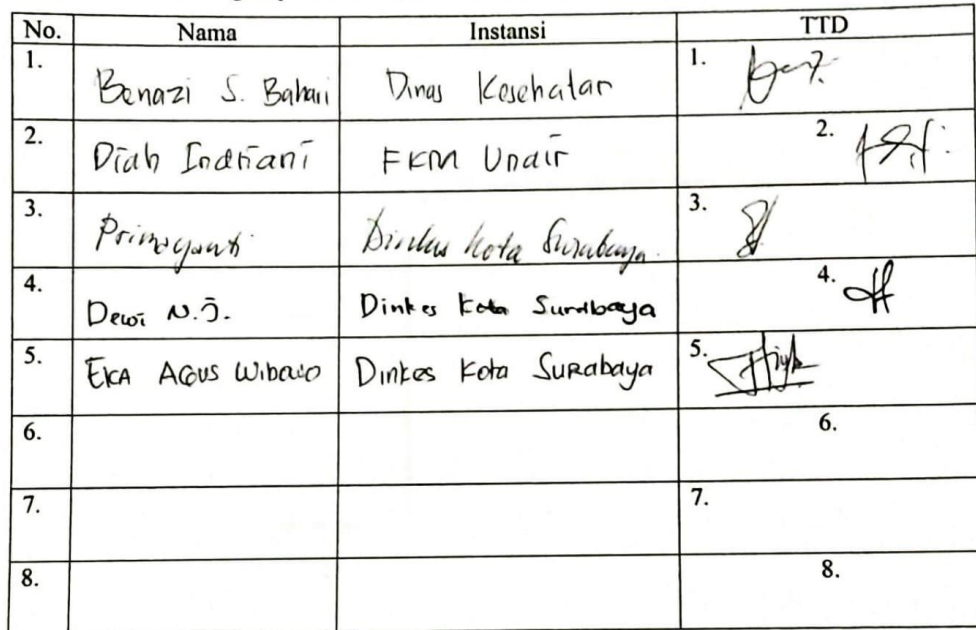 No. Nama Instansi TTD
1. Benazi S. Bahari Dinas Kesehatan 1.
2. Diah Indriani FKM Unair 2.
3. Primayanti Dinkes Kota Surabaya. 3.
4. Dewi N.J. Dinkes Kota Surabaya 4.
5. EKA AGUS Wibowo Dinkes Kota SuRabaya 5.
6. 6.
7. 7.
8. 8.